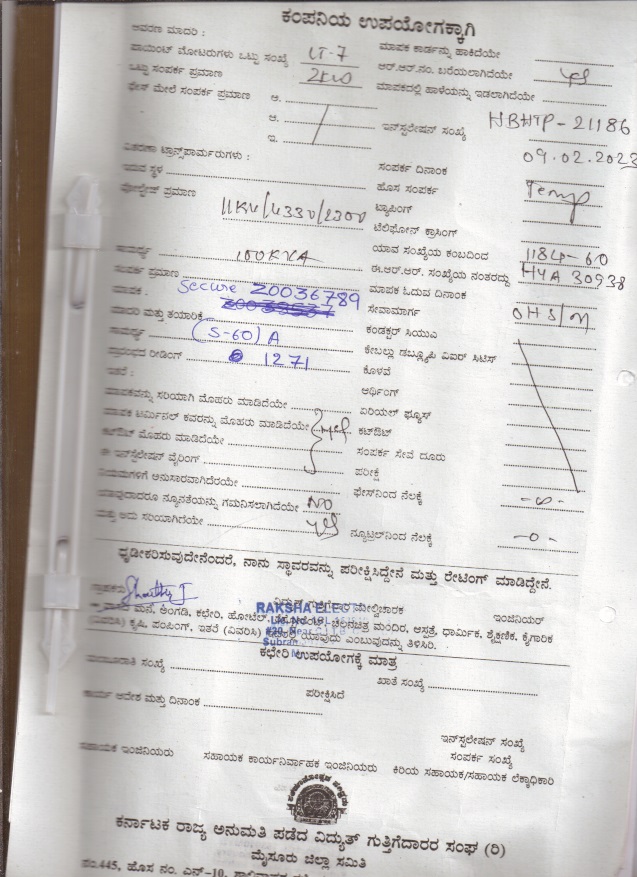 ಕಂಪನಿಯ ಉಪಯೋಗಕ್ಕಾಗಿ
ಆವರಣ ಮಾದರಿ :
ಪಾಯಿಂಟ್ ಮೋಟರುಗಳು ಒಟ್ಟು ಸಂಖ್ಯೆ LT-7
ಮಾಪಕ ಕಾರ್ಡನ್ನು ಹಾಕಿದೆಯೇ
ಒಟ್ಟು ಸಂಪರ್ಕ ಪ್ರಮಾಣ 2KW
ಆರ್.ಆರ್.ನಂ. ಬರೆಯಲಾಗಿದೆಯೇ yes
ಫೇಸ್ ಮೇಲೆ ಸಂಪರ್ಕ ಪ್ರಮಾಣ ಆ.
ಮಾಪಕದಲ್ಲಿ ಹಾಳೆಯನ್ನು ಇಡಲಾಗಿದೆಯೇ
ಆ.
ಇನ್‌ಸ್ಟಲೇಷನ್ ಸಂಖ್ಯೆ HBHTP-21186
ಇ.
ವಿತರಣಾ ಟ್ರಾನ್ಸ್‌ಪಾರ್ಮರುಗಳು :
ಸಂಪರ್ಕ ದಿನಾಂಕ 09.02.2023
ಇರುವ ಸ್ಥಳ
ಹೊಸ ಸಂಪರ್ಕ Temp
ವೋಲ್ಟೇಜ್ ಪ್ರಮಾಣ 11KV/433V/230V
ಟ್ಯಾಪಿಂಗ್
ಟೆಲಿಫೋನ್ ಕ್ರಾಸಿಂಗ್
ಸಾಮರ್ಥ್ಯ 100KVA
ಯಾವ ಸಂಖ್ಯೆಯ ಕಂಬದಿಂದ 1184-60
ಸಂಪರ್ಕ ಪ್ರಮಾಣ
ಈ.ಆರ್.ಆರ್. ಸಂಖ್ಯೆಯ ನಂತರದ್ದು HYA 30938
ಮಾಪಕ : Secure 20036789
ಮಾಪಕ ಓದುವ ದಿನಾಂಕ
ಮಾದರಿ ಮತ್ತು ತಯಾರಿಕೆ
ಸೇವಾಮಾರ್ಗ OHS/M
ಸಾಮರ್ಥ್ಯ (5-60)A
ಕಂಡಕ್ಟರ್ ಸಿಯುವಿ
ಪ್ರಾರಂಭದ ರೀಡಿಂಗ್ 1271
ಕೇಬಲ್ಲು ಡಬ್ಲ್ಯೂಪಿ ವಿಐರ್ ಸಿಟಿಸ್
ಇತರೆ :
ಕೊಳವೆ
ಅರ್ಥಿಂಗ್
ಮಾಪಕವನ್ನು ಸರಿಯಾಗಿ ಮೊಹರು ಮಾಡಿದೆಯೇ
ಏರಿಯಲ್ ಫ್ಯೂಸ್
ಮಾಪಕ ಟರ್ಮಿನಲ್ ಕವರನ್ನು ಮೊಹರು ಮಾಡಿದೆಯೇ yes
ಕಟ್‌ಔಟ್
ಕಟ್‌ಔಟ್ ಮೊಹರು ಮಾಡಿದೆಯೇ
ಸಂಪರ್ಕ ಸೇವೆ ದೂರು
ಈ ಇನ್‌ಸ್ಟಲೇಷನ್ ವೈರಿಂಗ್
ಪರೀಕ್ಷೆ
ನಿಯಮಗಳಿಗೆ ಅನುಸಾರವಾಗಿದೆರಯೇ
ಫೇಸ್‌ನಿಂದ ನೆಲಕ್ಕೆ -∞-
ಯಾವುದಾದರೂ ನ್ಯೂನತೆಯನ್ನು ಗಮನಿಸಲಾಗಿದೆಯೇ NO
ಮತ್ತು ಅದು ಸರಿಯಾಗಿದೆಯೇ yes
ನ್ಯೂಟ್ರಲ್‌ನಿಂದ ನೆಲಕ್ಕೆ -0-
ಧೃಡೀಕರಿಸುವುದೇನೆಂದರೆ, ನಾನು ಸ್ಥಾವರವನ್ನು ಪರೀಕ್ಷಿಸಿದ್ದೇನೆ ಮತ್ತು ರೇಟಿಂಗ್ ಮಾಡಿದ್ದೇನೆ.
ಮೇಲ್ವಿಚಾರಕ
ಇಂಜಿನಿಯರ್
RAKSHA ELE
ಮನೆ, ಅಂಗಡಿ, ಕಛೇರಿ, ಹೋಟೆಲ್, ಚಲನಚಿತ್ರ ಮಂದಿರ, ಆಸ್ಪತ್ರೆ, ಧಾರ್ಮಿಕ, ಶೈಕ್ಷಣಿಕ, ಕೈಗಾರಿಕ
(ವಿವರಿಸಿ) ಕೃಷಿ, ಪಂಪಿಂಗ್, ಇತರೆ (ವಿವರಿಸಿ) ಯಾವುದು ಎಂಬುವುದನ್ನು ತಿಳಿಸಿರಿ.
ಕಛೇರಿ ಉಪಯೋಗಕ್ಕೆ ಮಾತ್ರ
ಸಂಖ್ಯೆ
ಖಾತೆ ಸಂಖ್ಯೆ
ಕಾರ್ಯ ಆದೇಶ ಮತ್ತು ದಿನಾಂಕ
ಪರೀಕ್ಷಿಸಿದೆ
ಇನ್‌ಸ್ಟಲೇಷನ್ ಸಂಖ್ಯೆ
ಸಂಪರ್ಕ ಸಂಖ್ಯೆ
ಸಹಾಯಕ ಇಂಜಿನಿಯರು
ಸಹಾಯಕ ಕಾರ್ಯನಿರ್ವಾಹಕ ಇಂಜಿನಿಯರು
ಕಿರಿಯ ಸಹಾಯಕ/ಸಹಾಯಕ ಲೆಕ್ಕಾಧಿಕಾರಿ
ಕರ್ನಾಟಕ ರಾಜ್ಯ ಅನುಮತಿ ಪಡೆದ ವಿದ್ಯುತ್ ಗುತ್ತಿಗೆದಾರರ ಸಂಘ (ರಿ)
ಮೈಸೂರು ಜಿಲ್ಲಾ ಸಮಿತಿ
ನಂ.445, ಹೊಸ ನಂ. ಎನ್-10,